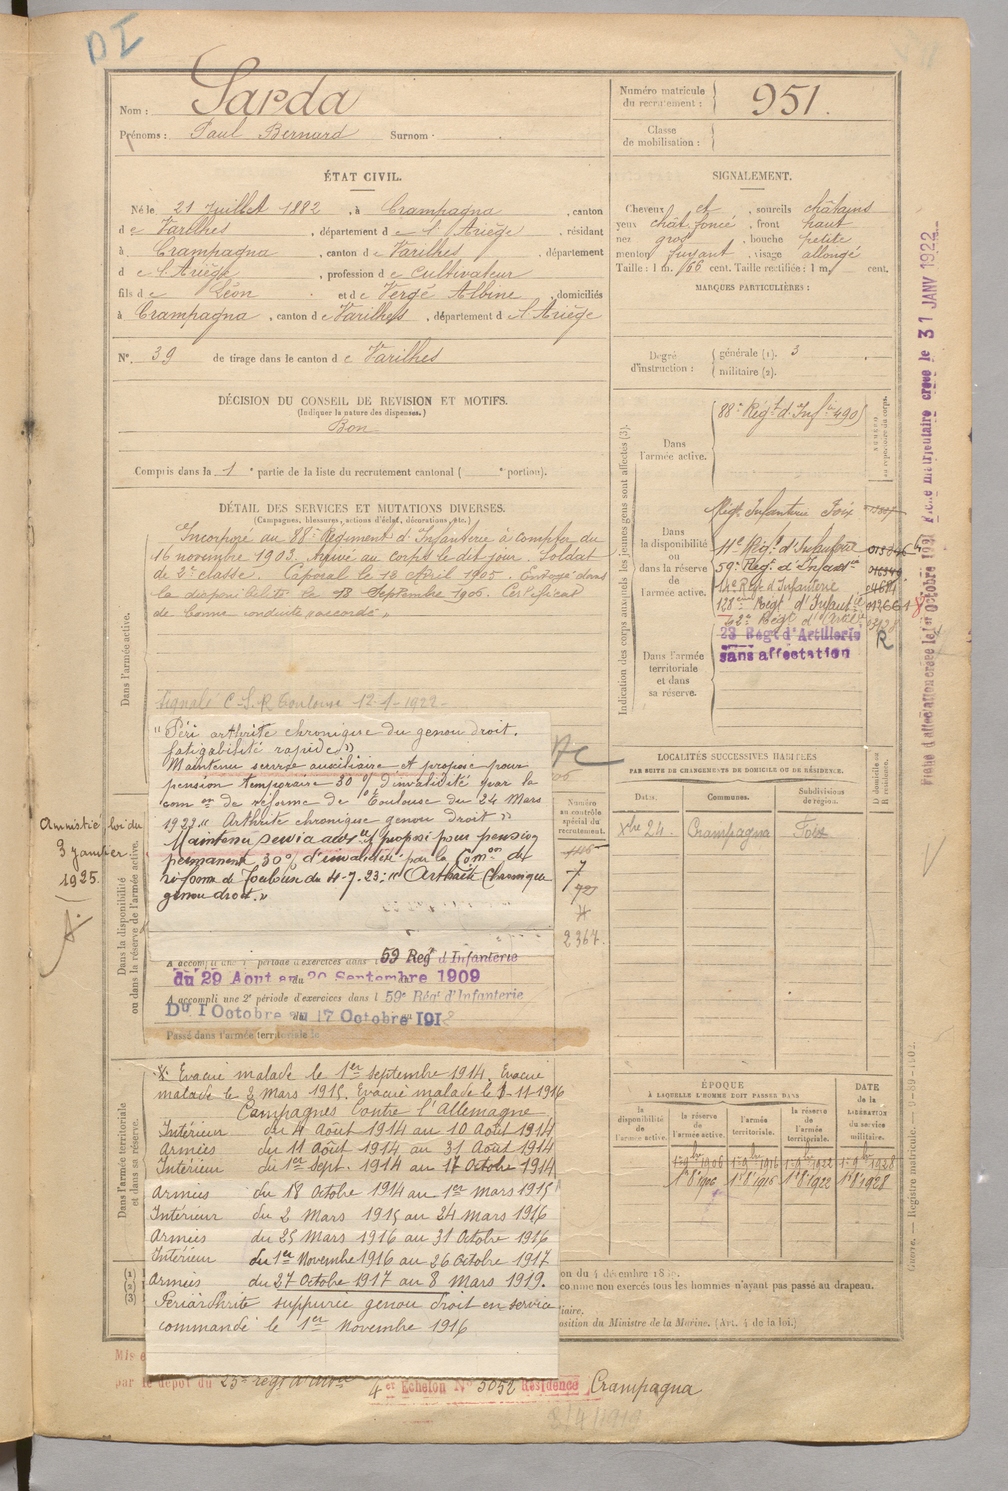 DI
Nom : Sarda
Prénoms : Paul Bernard Surnom :
Numéro matricule du recrutement : 951.
Classe de mobilisation :
ÉTAT CIVIL.
Né le 21 Juillet 1882, à Crampagna, canton
de Varilhes, département de l'Ariège, résidant
à Crampagna, canton de Varilhes, département
de l'Ariège, profession de cultivateur
fils de Léon et de Vergé Albine, domiciliés
à Crampagna, canton de Varilhes, département de l'Ariège
N° 39 de tirage dans le canton de Varilhes
SIGNALEMENT.
Cheveux et, sourcils châtains
yeux chât. foncé, front haut
nez gros, bouche petite
menton fuyant, visage allongé
Taille : 1 m. 66 cent. Taille rectifiée : 1 m. cent.
MARQUES PARTICULIÈRES :
Degré d'instruction : générale (1). 3
militaire (2).
DÉCISION DU CONSEIL DE REVISION ET MOTIFS.
(Indiquer la nature des dispenses.)
Bon
Compris dans la 1 e partie de la liste du recrutement cantonal ( e portion).
DÉTAIL DES SERVICES ET MUTATIONS DIVERSES.
(Campagnes, blessures, actions d'éclat, décorations, etc.)
Dans l'armée active.
Incorporé au 88e Régiment d'Infanterie à compter du
16 novembre 1903. Arrivé au corps le dit jour. Soldat
de 2e classe. Caporal le 18 Avril 1905. Envoyé dans
la disponibilité le 18 Septembre 1906. Certificat
de bonne conduite "accordé"
Signalé C.S.R Toulouse 12-1-1922
"Péri arthrite chronique du genou droit.
fatigabilité rapide"
Maintenu service auxiliaire et proposé pour
pension temporaire 30 % d'invalidité par la
com on de réforme de Toulouse du 24 Mars
1922 "Arthrite chronique genou droit"
Maintenu service aux re et proposé pour pension
permanente 30% d'invalidité par la Com on de
réforme de Toulouse du 4-7-23: "Arthrite chronique
genou droit."
Amnistié loi du
3 janvier
1925
Dans la disponibilité ou dans la réserve de l'armée active.
A accompli une 1e période d'exercices dans l 59 Reg t d'Infanterie
du 29 Aout au 20 Septembre 1909
A accompli une 2e période d'exercices dans l 59e Régt d'Infanterie
Du 1 Octobre au 17 Octobre 1912
Passé dans l'armée territoriale le
Dans l'armée territoriale et dans sa réserve.
Evacué malade le 1er septembre 1914. Evacué
malade le 2 Mars 1915. Evacué malade le 1-11-1916
Campagnes contre l'Allemagne
Intérieur du 4 Août 1914 au 10 Août 1914
Armées du 11 Août 1914 au 31 Août 1914
Intérieur du 1er sept. 1914 au 17 Octobre 1914
Armées du 18 Octobre 1914 au 1er Mars 1915
Intérieur du 2 Mars 1915 au 24 Mars 1916
Armées du 25 Mars 1916 au 31 Octobre 1916
Intérieur du 1er Novembre 1916 au 26 Octobre 1917
Armées du 27 Octobre 1917 au 8 Mars 1919.
Periarthrite suppurée genou droit en service
commandé le 1er Novembre 1916
Indication des corps auxquels les jeunes gens sont affectés (3).
Dans l'armée active.
88e Régt d'Infie 490
Dans la disponibilité ou dans la réserve de l'armée active.
Régt Infanterie Foix
11e Régt d'Infanterie
59e Régt d'Infanterie
14e Régt d'Infanterie
128ème Régt d'Infantie 012661
Dans l'armée territoriale et dans sa réserve.
23 Régt d'Artillerie
sans affectation
R
Numéro au contrôle spécial du recrutement.
7
2367.
LOCALITÉS SUCCESSIVES HABITÉES
PAR SUITE DE CHANGEMENTS DE DOMICILE OU DE RÉSIDENCE.
Dates. Communes. Subdivisions de région. D domicile ou R résidence.
Xbre 24. Crampagna Foix
ÉPOQUE
À LAQUELLE L'HOMME DOIT PASSER DANS
la disponibilité de l'armée active. la réserve de l'armée active. l'armée territoriale. la réserve de l'armée territoriale.
DATE de la LIBÉRATION du service militaire.
1er 9bre 1906 1er 9bre 1916 1er 9bre 1922 1er 9bre 1928
1er 8bre 1906 1er 8bre 1916 1er 8bre 1922 1er 8bre 1928
on du 4 décembre 18
comme non exercés tous les hommes n'ayant pas passé au drapeau.
position du Ministre de la Marine. (Art. 4 de la loi.)
par le dépot du 23e régt d'Artie
4er Echelon N° 3052 Résidence Crampagna
2/4/1919
Fiche d'affectation créée le 1er Octobre 1931 Fiche matriculaire créée le 31 JANV 1922
Guerre. — Registre matricule. — 9-89-1902.